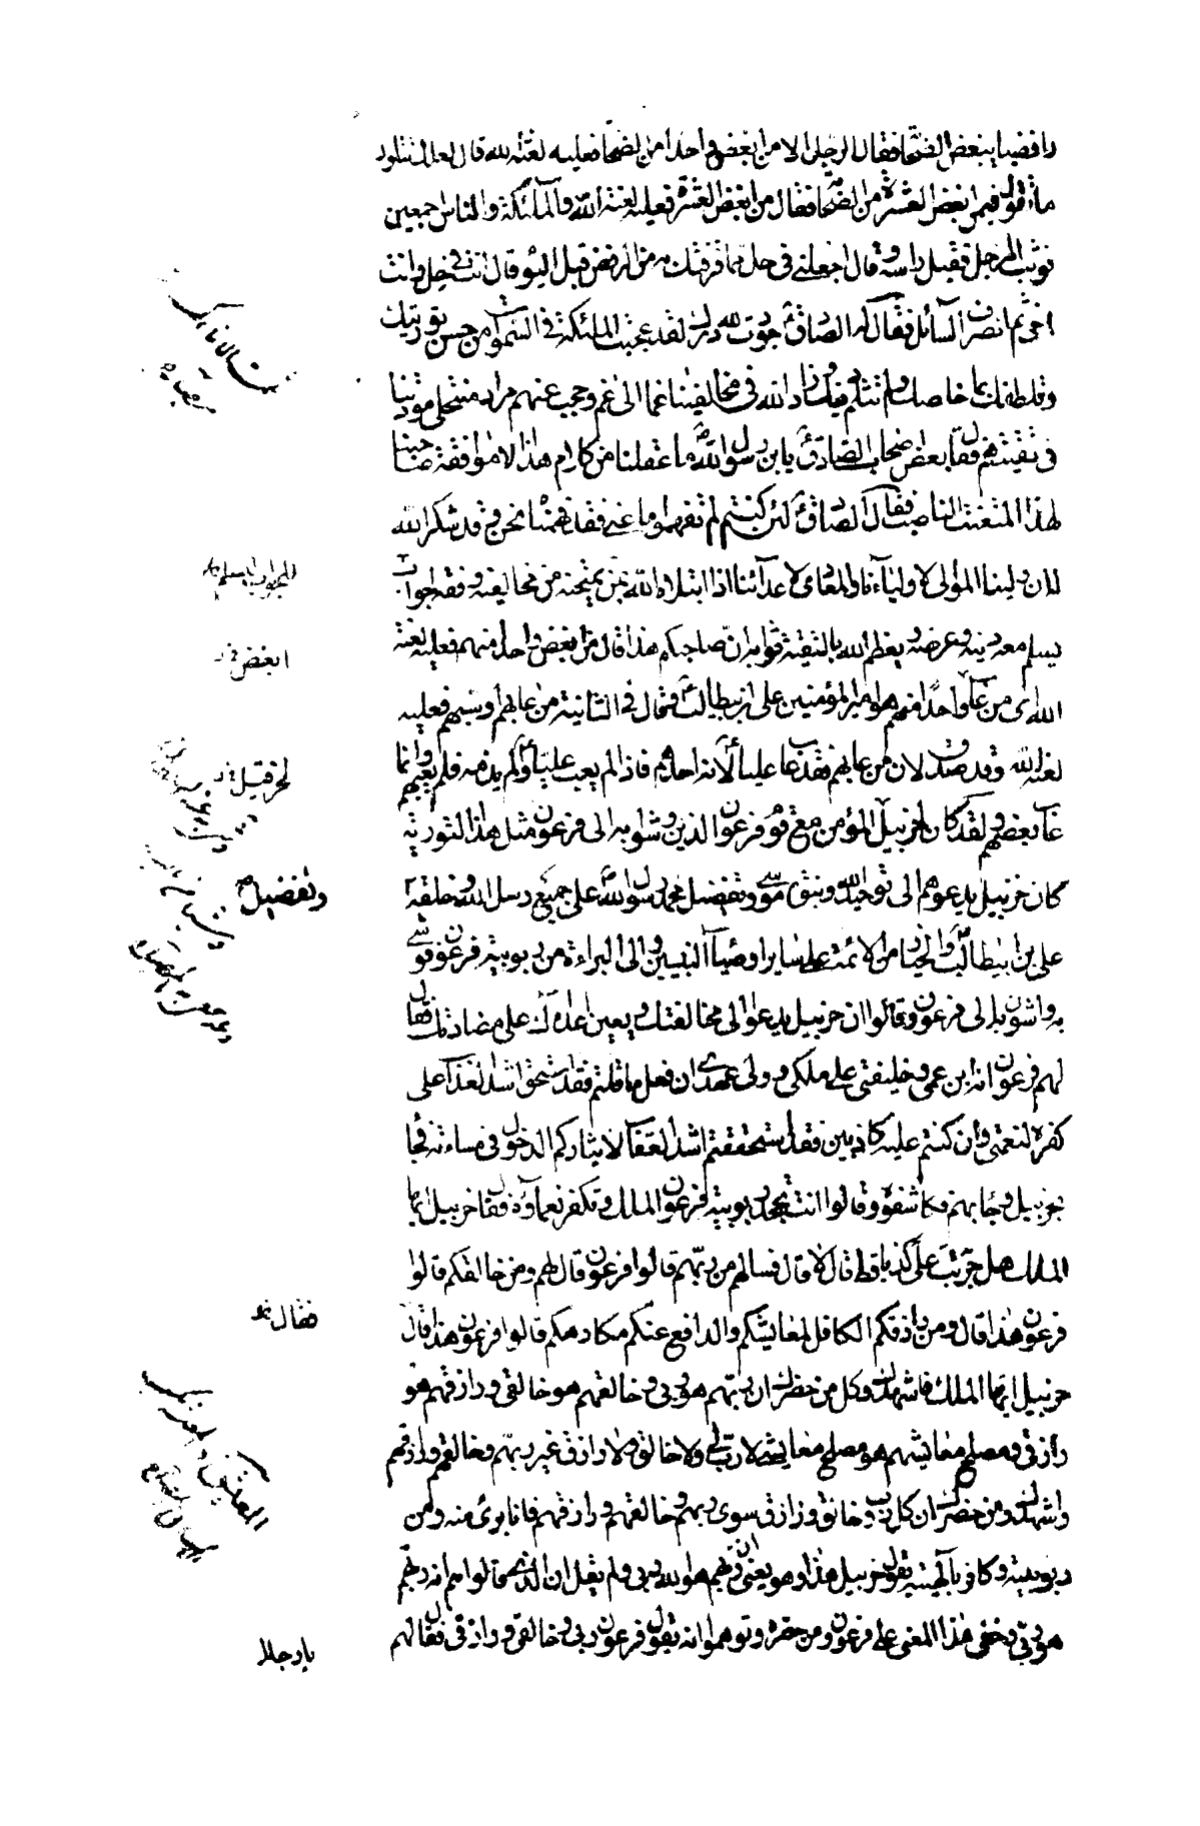 رافضيا يبغض الصحابة فقال الرجل الا من ابغض واحدا من الصحابة فعليه لعنة الله قال لعلك تتاول
ما تقول فيمن ابغض العشرة من الصحابة فقال من ابغض العشرة فعليه لعنة الله والملئكة والناس اجمعين
فوثب الرجل فقبل راسه وقال اجعلني في حل مما قرفتك به من الرفض قبل اليوم قال انت في حل وانت
اخي ثم انصرف السائل فقال له الصادق ع جودت لله درك لقد عجبت الملئكة في السموات من حسن توريتك
وتلطفك بما خلصك ولم تثلم دينك وزاد الله في مخالفينا غما الى غم وحجب عنهم مراد منتحلي مودتنا
في تقيتهم فقال بعض اصحاب الصادق ع يابن رسول الله ص ما عقلنا من كلام هذا الا موافقة صاحبنا
لهذا المتعنت الناصب فقال الصادق ع لئن كنتم لم تفهموا ما عنى فقد فهمناه نحن وقد شكر الله
له ان ولينا الموالي لاوليائنا والمعادي لاعدائنا اذا ابتلاه الله بمن يمتحنه من مخالفيه وفقه لجواب
يسلم معه دينه وعرضه ويعظم الله بالتقية ثوابه ان صاحبكم هذا قال من ابغض واحدا منهم فعليه لعنة
الله اى من عاب واحدا منهم هو امير المؤمنين على بن ابيطالب ع وقال في الثانية من عابهم او شتمهم فعليه
لعنة الله وقد صدق لان من عابهم فقد عاب عليا ع لانه احدهم فاذا لم يعب عليا ع ولم يذمه فلم يعبهم وانما
عاب بعضهم ولقد كان لحزبيل المؤمن مع قوم فرعون الذين وشوا به الى فرعون مثل هذا التورية
كان حزبيل يدعوهم الى توحيد الله ونبوة موسى وتفضيل محمد رسول الله ص على جميع رسل الله وخلقه
على بن ابيطالب ع والخيار من الائمة على ساير اوصياء النبيين والى البراءة من ربوبية فرعون فوشى
به واشون الى فرعون وقالوا ان حزبيل يدعوا الى مخالفتك ويعين اعداءك على مضادتك فقال
لهم فرعون انه ابن عمى وخليفتى على ملكى وولى عهدى ان فعل ما قلتم فقد استحق اشد العذاب على
كفره لنعمتى وان كنتم عليه كاذبين فقد استحققتم اشد العقاب لايثاركم الدخول في مساءته فجاء
بحزبيل وجاء بهم فكاشفوه وقالوا انت تجحد ربوبية فرعون الملك وتكفر نعماءه فقال حزبيل ايها
الملك هل جربت على كذبا قط قال لا قال فسالهم من ربهم قالوا فرعون قال لهم ومن خالقكم قالوا
فرعون هذا قال ومن رازقكم الكافل لمعايشكم والدافع عنكم مكارهكم قالوا فرعون هذا قال
حزبيل ايها الملك فاشهدك وكل من حضرك ان ربهم هو ربى وخالقهم هو خالقى ورازقهم هو
رازقى ومصلح معايشهم هو مصلح معايشى لا رب لى ولا خالق ولا رازق غير ربهم وخالقهم ورازقهم
واشهدك ومن حضرك ان كل رب وخالق ورازق سوى ربهم وخالقهم ورازقهم فانا برئ منه ومن
ربوبيته وكافر بالهيته يقول حزبيل هذا وهو يعنى ان ربهم هو الله ربى ولم يقل ان الذى قالوا هم انه ربهم
هو ربى وخفى هذا المعنى على فرعون ومن حضره وتوهموا انه يقول فرعون ربى وخالقى ورازقى فقال لهم
ابغض
وتفضيل
فقال
يا رجال